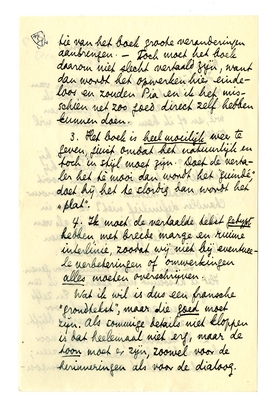 tie van het boek groote veranderingen
aanbrengen. — Toch moet het boek
daarom niet slecht vertaald zijn, want
dan wordt het opwerken hier einde-
loos en zouden Pia en ik het mis-
schien net zoo goed direct zelf hebben
kunnen doen.
3. Het boek is heel moeilijk weer te
geven, juist omdat het natuurlijk en
toch in stijl moet zijn. Doet de verta-
ler het te mooi dan wordt het
doet hij het te slordig dan wordt het
"plat".
4. Ik moet de vertaalde tekst getypt
hebben met breede marge en ruime
interlinie, zoodat wij niet bij eventuee-
le verbeteringen of omwerkingen
alles moeten overschrijven.
Wat ik wil is dus een fransche
"grondtekst", maar die goed moet
zijn. Als sommige details niet kloppen
is dat heelemaal niet erg, maar de
toon moet er zijn, zoowel voor de
herinneringen als voor de dialoog.